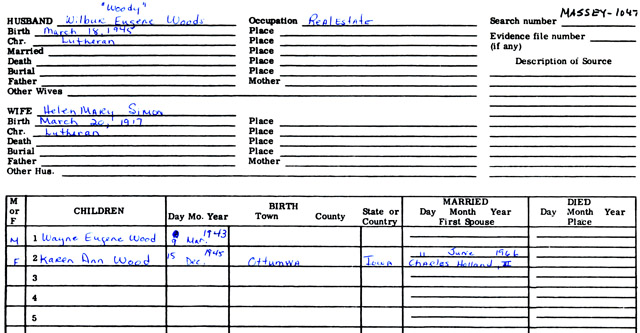 "Woody"
MASSEY-1047
HUSBAND Wilbur Eugene Woods Occupation Real Estate Search number
Birth March 18, 1945 Place
Evidence file number
Chr. Lutheran Place
(if any)
Married Place
Description of Source
Death Place
Burial Place
Father Mother
Other Wives
WIFE Helen Mary Simon
Birth March 20, 1917 Place
Chr. Lutheran Place
Death Place
Burial Place
Father Mother
Other Hus.
M or F CHILDREN BIRTH MARRIED DIED
Day Mo. Year Town County State or Country Day Month Year First Spouse Day Month Year Place
M 1 Wayne Eugene Wood 9 Mar. 1943
F 2 Karen Ann Wood 15 Dec. 1945 Ottumwa Iowa 11 June 1966
Charles Holland, II
3
4
5